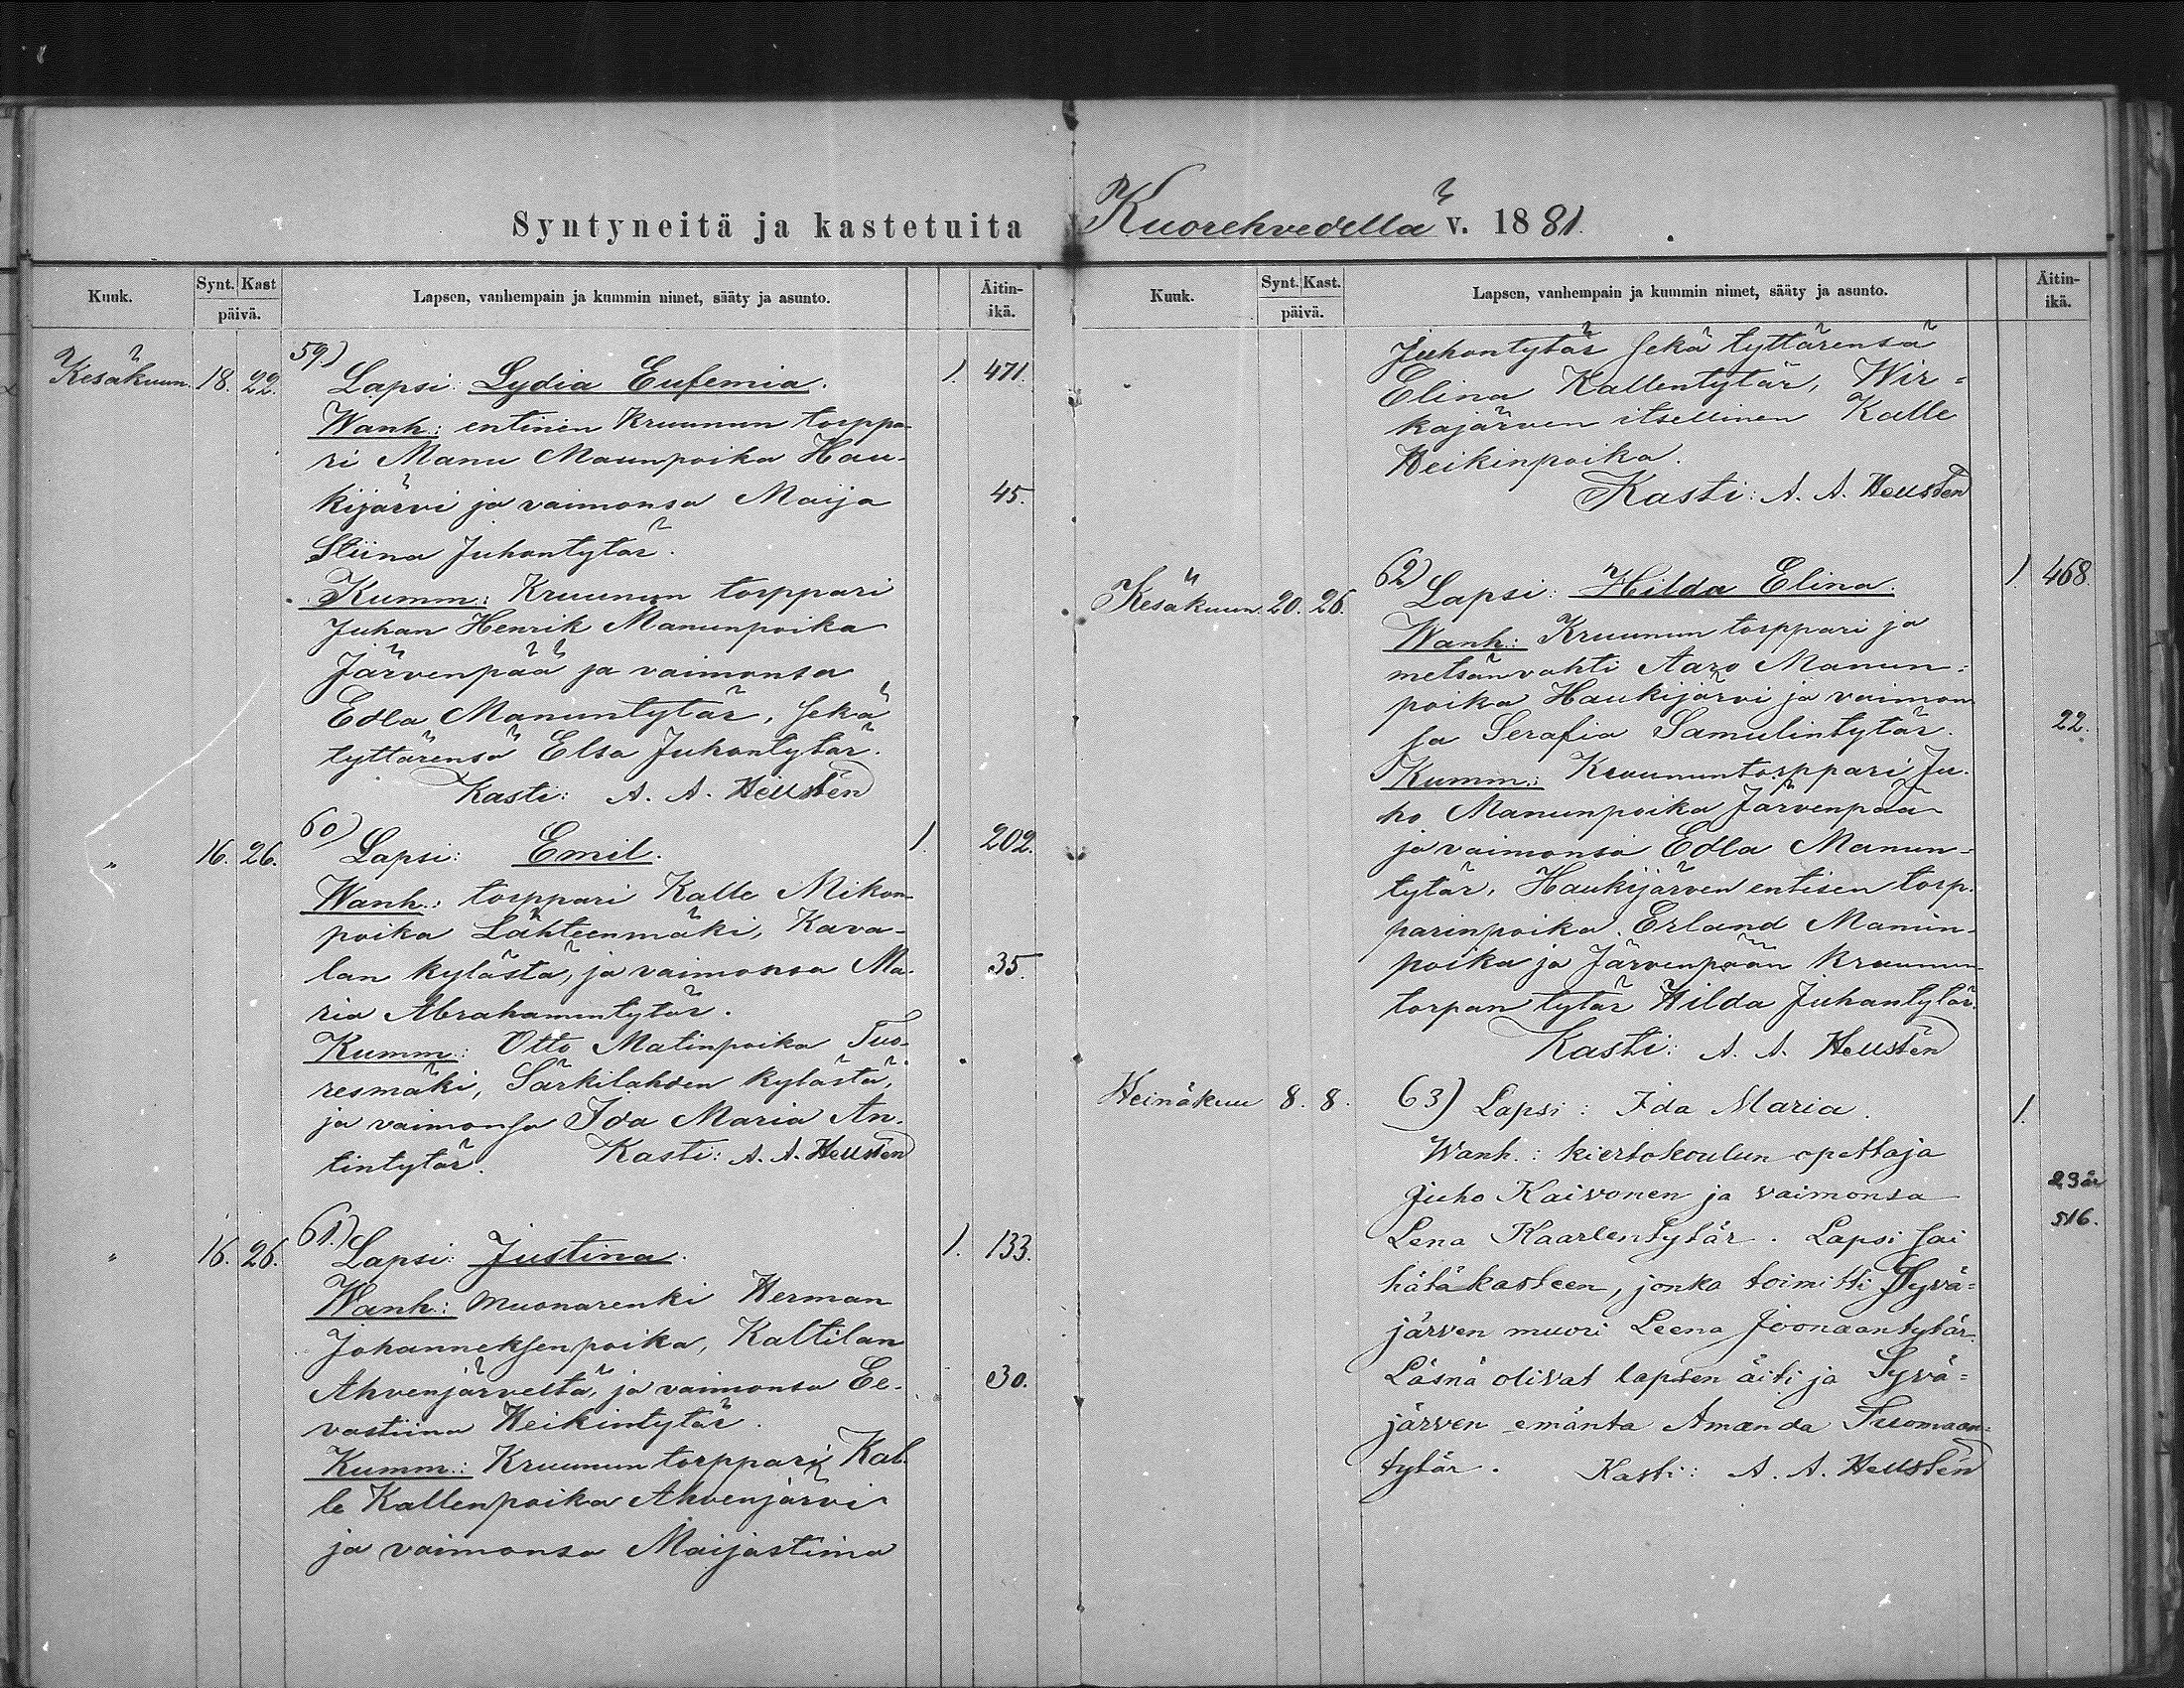 Syntyneitä ja kastetuita Kuorehvedellä v. 1881.
Kuuk. Synt. Kast päivä. Lapsen, vanhempain ja kummin nimet, sääty ja asunto. Äitin-ikä.
59)
Kesäkuun. 18. 22. Lapsi: Lydia Eufemia. 1. 471.
Wanh.: entinen Kruunun torppa-
ri Manu Maunpoika Hau-
kijärvi ja vaimonsa Maija 45.
Stiina Juhontytär.
Kumm: Kruunun torppari
Juhan Henrik Manunpoika
Järvenpää ja vaimonsa
Edla Manuntytär, sekä
tyttärensä Elsa Juhontytär.
Kasti: A. A. Hellstén
60)
" 16. 26. Lapsi: Emil. 1. 202.
Wanh.: torppari Kalle Mikon-
poika Lähteenmäki, Kava-
lan kylästä, ja vaimonsa Ma- 35.
ria Abrahamintytär.
Kumm: Otto Matinpoika Tuo-
resmäki, Särkilahden kylästä,
ja vaimonsa Ida Maria An-
tintytär. Kasti: A. A. Hellstén
61.)
" 16. 26. Lapsi: Justina. 1. 133.
Wanh.: muonarenki Herman
Johanneksenpoika, Kaltilan
Ahvenjärveltä, ja vaimonsa Ee- 30.
vastiina Heikintytär.
Kumm.: Kruunun torppari Kal-
le Kallenpoika Ahvenjärvi
ja vaimonsa Maijastiina
Kuuk. Synt. Kast. päivä. Lapsen, vanhempain ja kummin nimet, sääty ja asunto. Äitin-ikä.
Juhontytär sekä tyttärensä
Elina Kallentytär, Wir-
kajärven itsellinen Kalle
Heikinpoika.
Kasti: A. A. Hellstén
62)
Kesäkuun 20. 26. Lapsi: Hilda Elina. 1. 468.
Wanh.: Kruunun torppari ja
metsänvahti Aaro Manun-
poika Haukijärvi ja vaimon-
sa Serafia Samulintytär. 22.
Kumm.: Kruununtorppari Ju-
ho Manunpoika Järvenpää
ja vaimonsa Edla Manun-
tytär, Haukijärven entisen torp-
parinpoika Erland Manun-
poika ja Järvenpään kruunun-
torpan tytär Hilda Juhantytär.
Kasti: A. A. Hellstén
Heinäkuu 8. 8. 63) Lapsi: Ida Maria. 1.
Wanh.: kiertokoulun opettaja
Juho Kaivonen ja vaimonsa 29 år
Lena Kaarlentytär. Lapsi sai 516.
hätäkasteen, jonka toimitti Syvä-
järven muori Leena Joonaantytär.
Läsnä olivat lapsen äiti ja Syvä-
järven emäntä Amanda Tuomaan-
tytär. Kasti: A. A. Hellstén